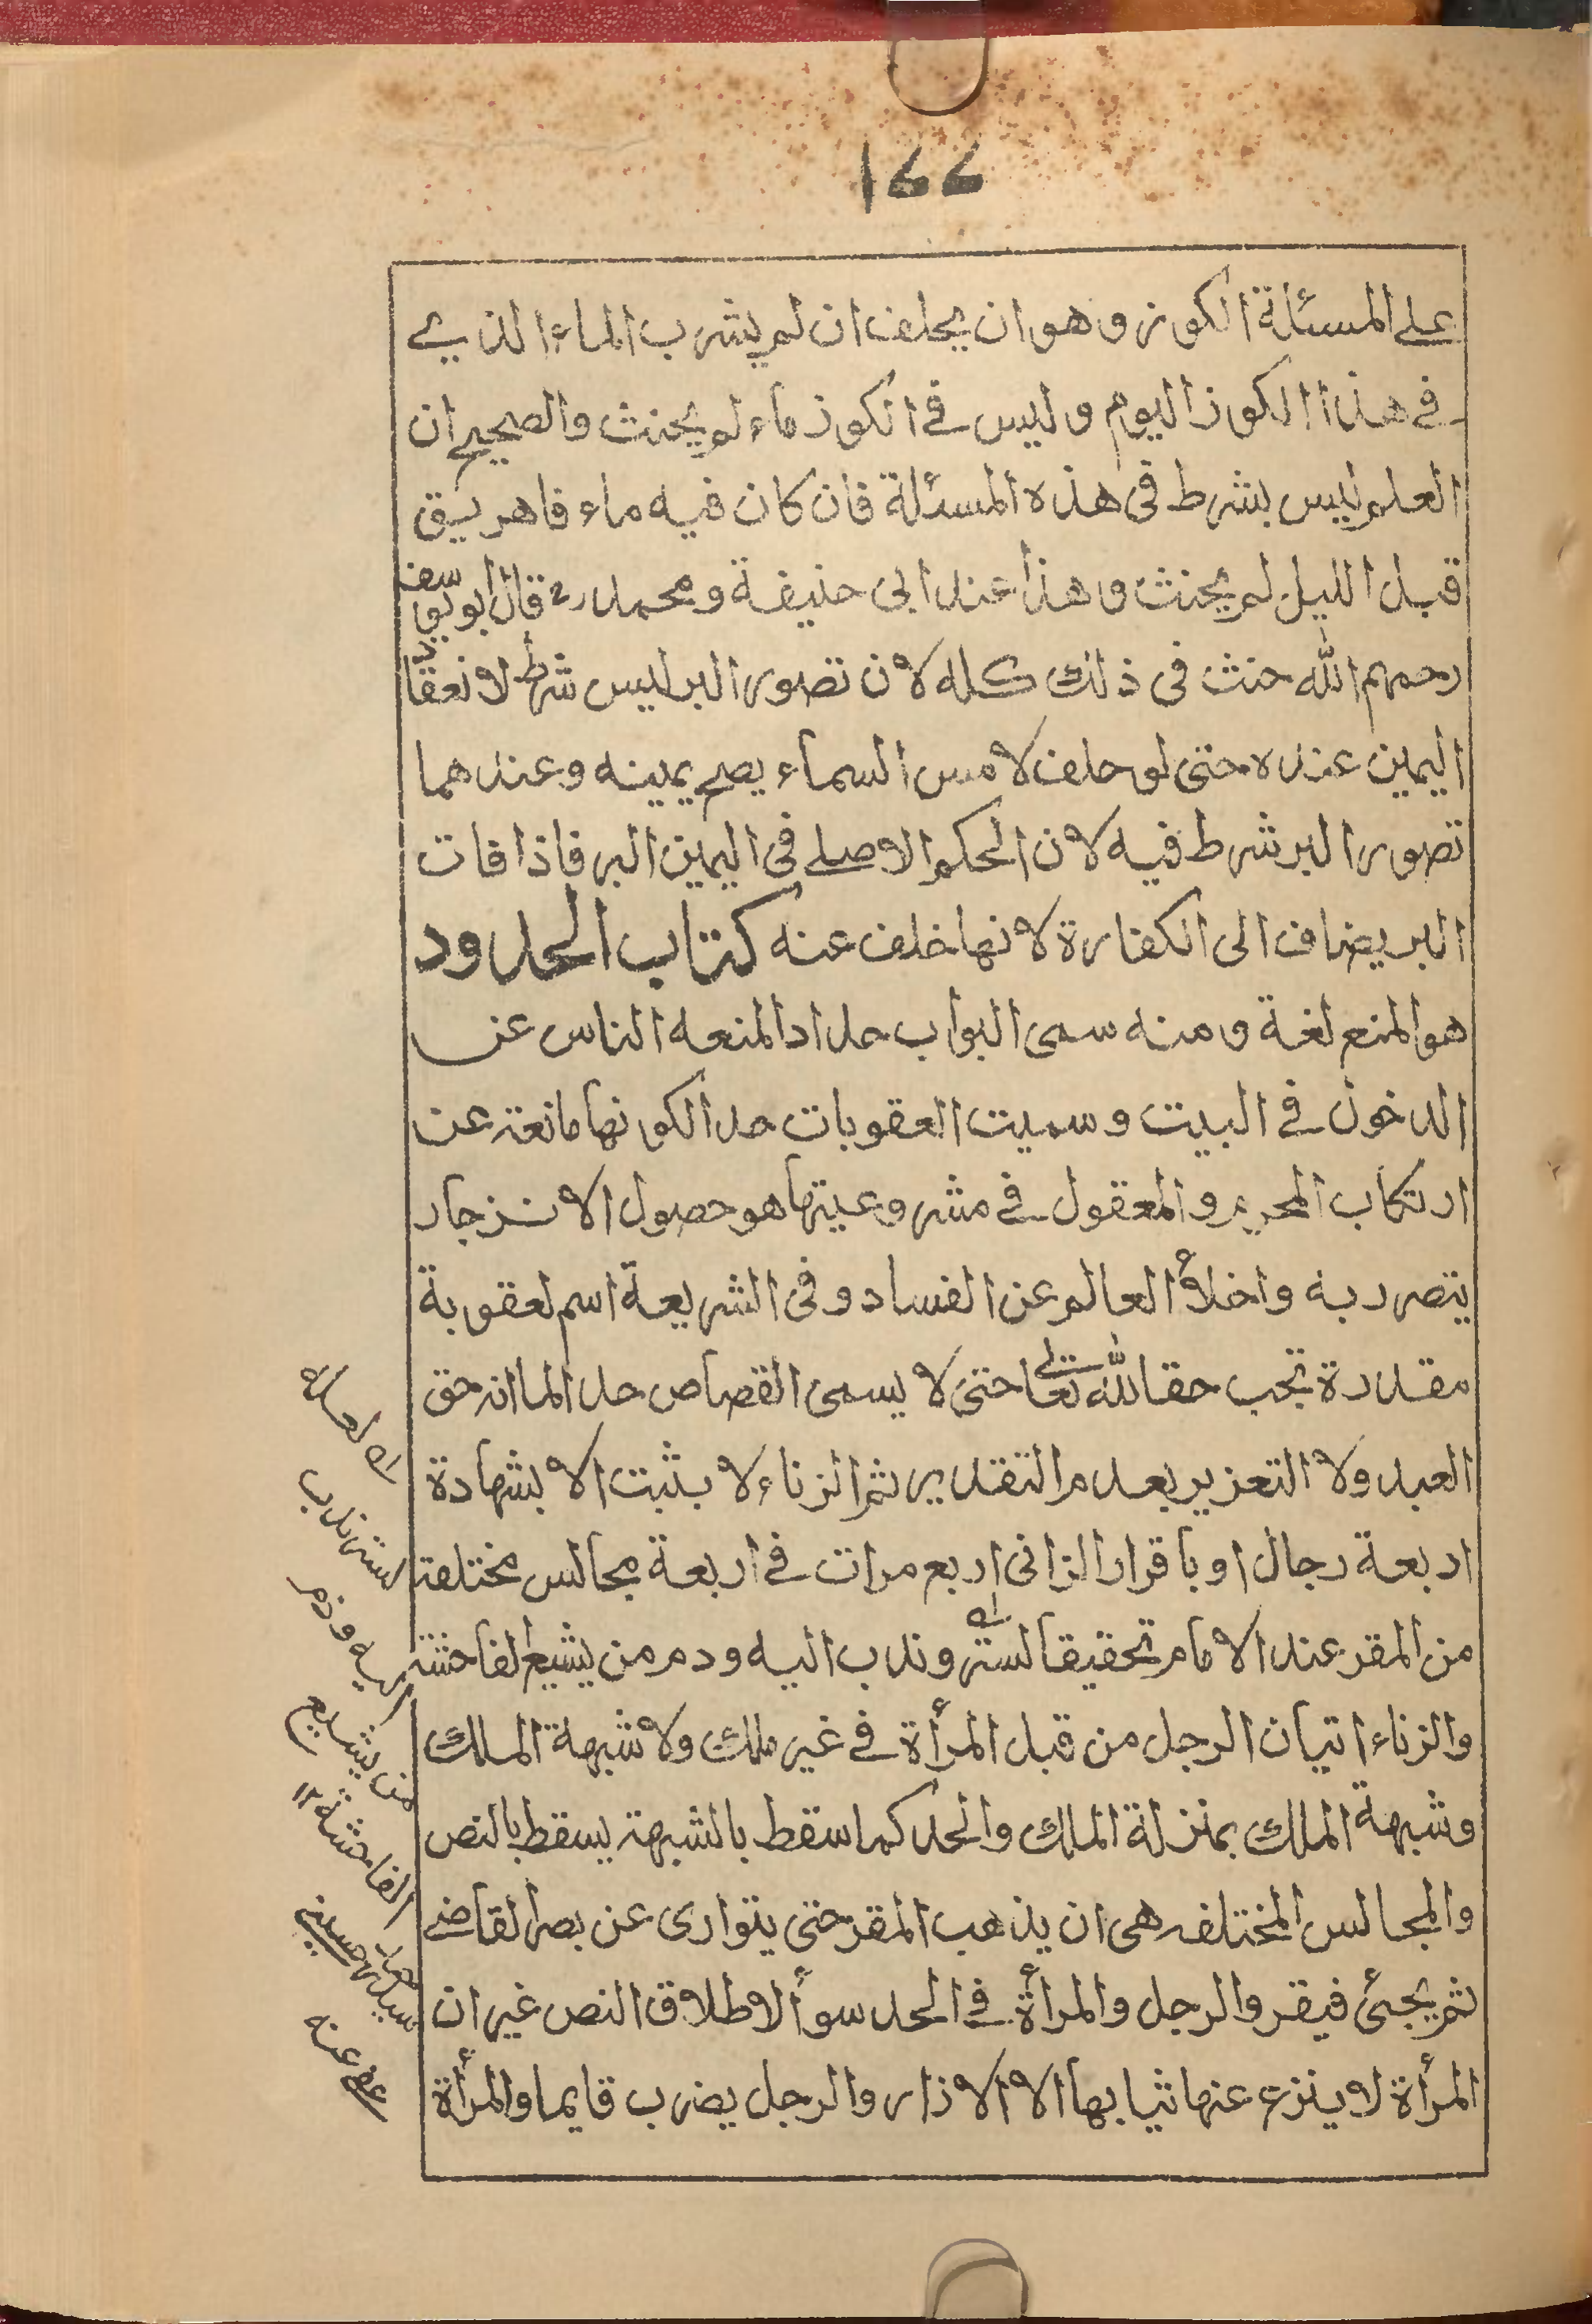 ١٤٤
على المسئلة الكوز وهو ان يحلف ان لم يشرب الماء الذي
في هذا الكوز اليوم وليس في الكوز ماء لم يحنث والصحيح ان
العلم ليس بشرط في هذه المسئلة فان كان فيه ماء فاهريق
قبل الليل لم يحنث وهذا عند ابى حنيفة ومحمد رح قال ابو يوسف
رحمهم الله حنث فى ذلك كله لان تصور البر ليس شرط لانعقاد
اليمين عنده حتى لو حلف لامس السماء يصح يمينه وعندهما
تصور البر شرط فيه لان الحكم الاصلے فى اليمين البر فاذا فات
البر يضاف الى الكفارة لانها خلف عنه كتاب الحدود
هو المنع لغة ومنه سمى البواب حدادا لمنعه الناس عن
الدخول في البيت وسميت العقوبات حدا لكونها مانعة عن
ارتكاب المحرم والمعقول في مشروعيتها هو حصول الانزجار
يتضرر به واخلاء العالم عن الفساد وفى الشريعة اسم لعقوبة
مقدرة تجب حقا لله تعالى حتى لا يسمى القصاص حدا لما انه حق
العبد ولا التعزير بعدم التقدير ثم الزناء لا بثبت الا بشهادة
اربعة رجال او باقرار الزانى اربع مرات في اربعة مجالس مختلفة
من المقر عند الامام تحقيقا لستر وندب اليه ودم من يشيع لفاحشة
والزناء اتيان الرجل من قبل المرأة في غير ملك ولا شبهة الملك
وشبهة الملك بمنزلة الملك والحد كما سقط بالشبهة يسقط بالنص
والمجالس المختلفه هى ان يذهب المقر حتى يتوارى عن بصر القاضے
ثم يجئ فيقر والرجل والمرأة في الحد سوأ لاطلاق النص غير ان
المرأة لا ينزع عنها ثيابها الا الازار والرجل يضرب قايما والمرأة
الستر ندب
اليه وذم
من يشيع
الفاحشة ١٢
عفى عنه